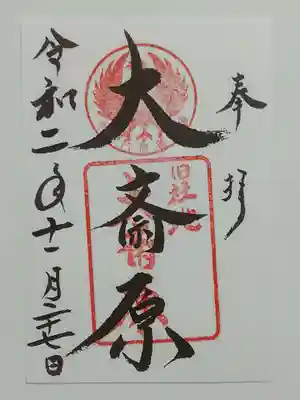 奉拝
大斎原
旧社地
令和二年十一月二十七日